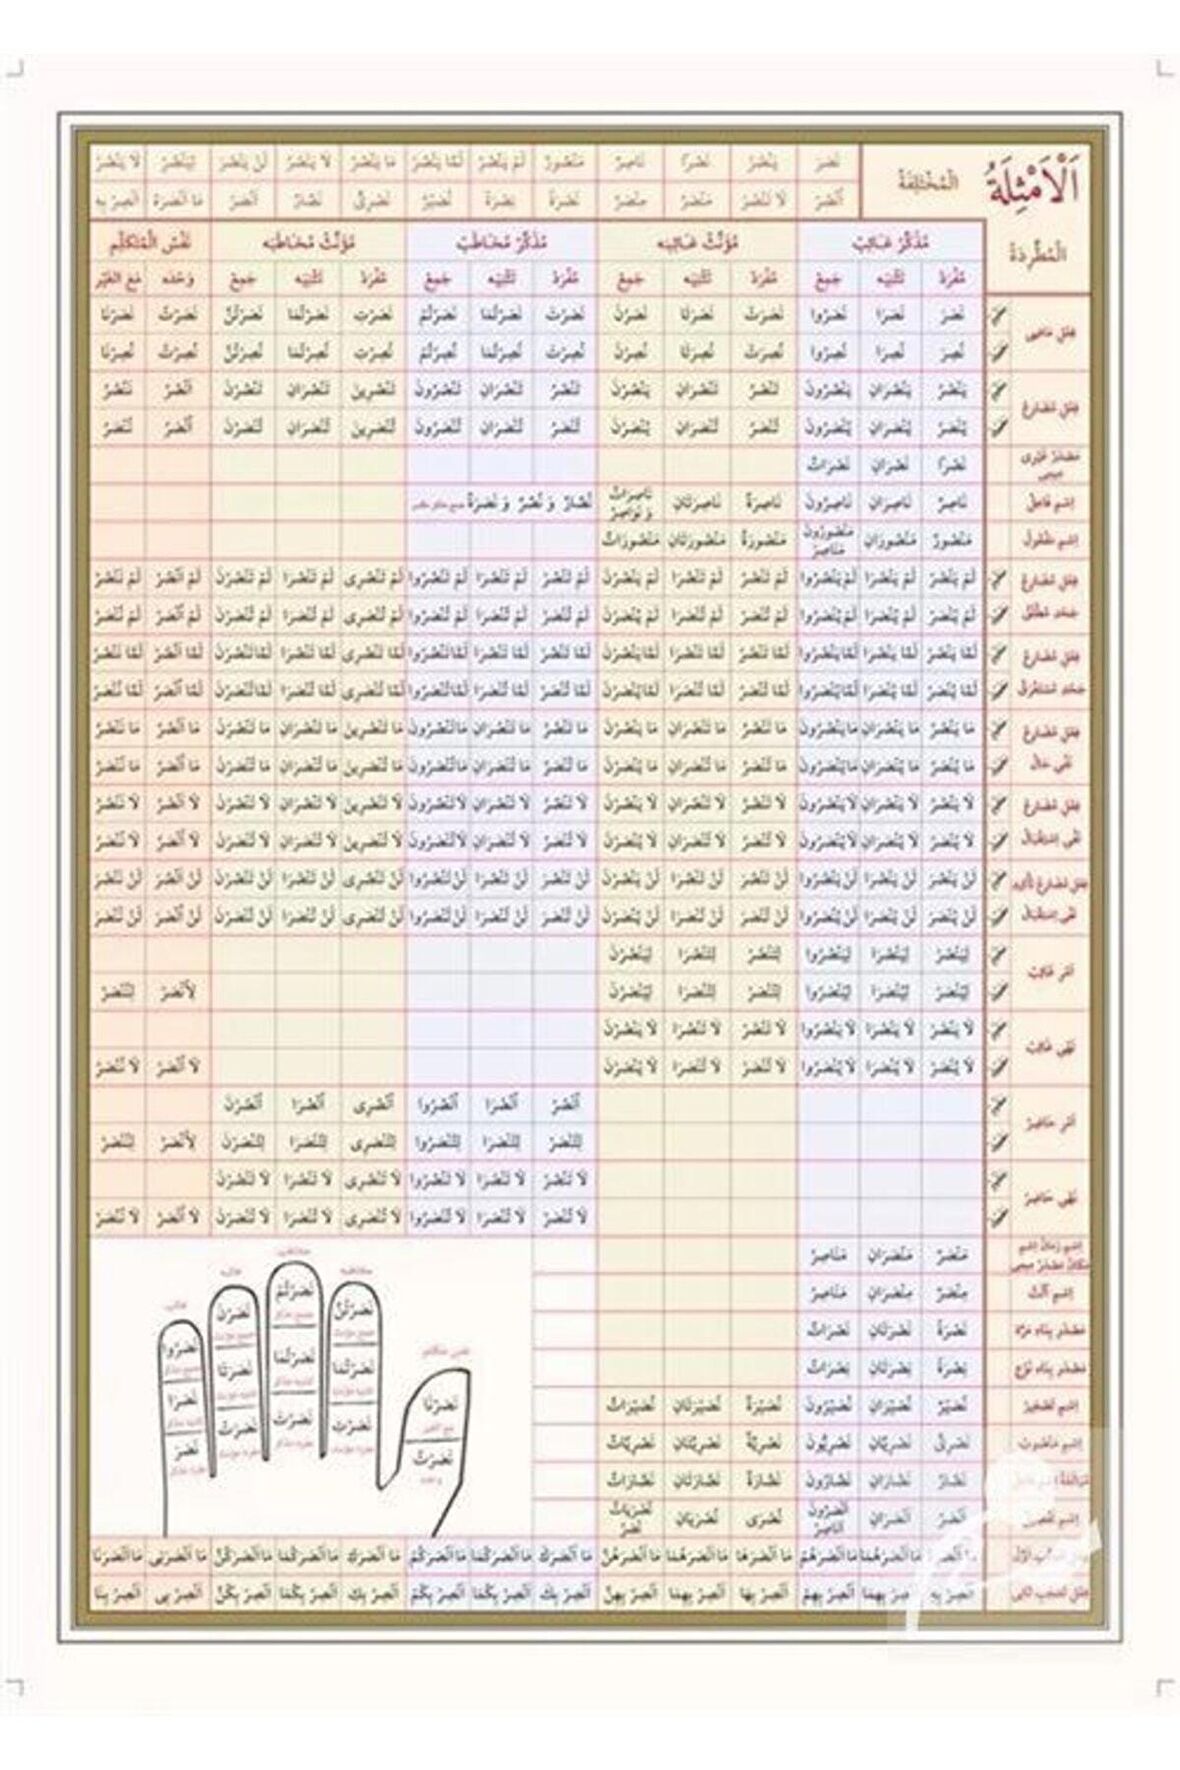 اَلْاَمْثِلَةُ الْمُخْتَلِفَةُ نَصَرَ يَنْصُرُ نَصْرًا نَاصِرٌ مَنْصُورٌ لَمْ يَنْصُرْ لَمَّا يَنْصُرْ مَا يَنْصُرُ لَا يَنْصُرُ لَنْ يَنْصُرَ لِيَنْصُرْ لَا يَنْصُرْ
اُنْصُرْ لَا تَنْصُرْ مَنْصَرٌ مِنْصَرٌ نَصْرَةً نِصْرَةً نُصَيْرٌ نَصْرِىٌّ نَصَّارٌ اَنْصَرُ مَا اَنْصَرَهُ اَنْصِرْ بِهِ
الْمُطَّرِدَةُ مُذَكَّرْ غَائِبْ مُؤَنَّثْ غَائِبَه مُذَكَّرْ مُخَاطَبْ مُؤَنَّثْ مُخَاطَبَه نَفْسُ الْمُتَكَلِّمِ
مُفْرَدْ تَثْنِيَه جَمِعْ مُفْرَدْ تَثْنِيَه جَمِعْ مُفْرَدْ تَثْنِيَه جَمِعْ مُفْرَدْ تَثْنِيَه جَمِعْ وَحْدَه مَعَ الْغَيْر
فِعْلِ مَاضِى نَصَرَ نَصَرَا نَصَرُوا نَصَرَتْ نَصَرَتَا نَصَرْنَ نَصَرْتَ نَصَرْتُمَا نَصَرْتُمْ نَصَرْتِ نَصَرْتُمَا نَصَرْتُنَّ نَصَرْتُ نَصَرْنَا
نُصِرَ نُصِرَا نُصِرُوا نُصِرَتْ نُصِرَتَا نُصِرْنَ نُصِرْتَ نُصِرْتُمَا نُصِرْتُمْ نُصِرْتِ نُصِرْتُمَا نُصِرْتُنَّ نُصِرْتُ نُصِرْنَا
فِعْلِ مُضَارِعْ يَنْصُرُ يَنْصُرَانِ يَنْصُرُونَ تَنْصُرُ تَنْصُرَانِ يَنْصُرْنَ تَنْصُرُ تَنْصُرَانِ تَنْصُرُونَ تَنْصُرِينَ تَنْصُرَانِ تَنْصُرْنَ اَنْصُرُ نَنْصُرُ
يُنْصَرُ يُنْصَرَانِ يُنْصَرُونَ تُنْصَرُ تُنْصَرَانِ يُنْصَرْنَ تُنْصَرُ تُنْصَرَانِ تُنْصَرُونَ تُنْصَرِينَ تُنْصَرَانِ تُنْصَرْنَ اُنْصَرُ نُنْصَرُ
نَصْرًا نَصْرَانِ نَصْرَاتٌ
اِسْمِ فَاعِلْ نَاصِرٌ نَاصِرَانِ نَاصِرُونَ نَاصِرَةٌ نَاصِرَتَانِ نَاصِرَاتٌ وَ نَوَاصِرُ نُصَّارٌ وَ نُصَّرٌ وَ نَصَرَةٌ
اِسْمِ مَفْعُولْ مَنْصُورٌ مَنْصُورَانِ مَنْصُورُونَ مَنَاصِرُ مَنْصُورَةٌ مَنْصُورَتَانِ مَنْصُورَاتٌ
فِعْلِ مُضَارِعْ لَمْ يَنْصُرْ لَمْ يَنْصُرَا لَمْ يَنْصُرُوا لَمْ تَنْصُرْ لَمْ تَنْصُرَا لَمْ يَنْصُرْنَ لَمْ تَنْصُرْ لَمْ تَنْصُرَا لَمْ تَنْصُرُوا لَمْ تَنْصُرِى لَمْ تَنْصُرَا لَمْ تَنْصُرْنَ لَمْ اَنْصُرْ لَمْ نَنْصُرْ
جَحْدِ مُطْلَقْ لَمْ يُنْصَرْ لَمْ يُنْصَرَا لَمْ يُنْصَرُوا لَمْ تُنْصَرْ لَمْ تُنْصَرَا لَمْ يُنْصَرْنَ لَمْ تُنْصَرْ لَمْ تُنْصَرَا لَمْ تُنْصَرُوا لَمْ تُنْصَرِى لَمْ تُنْصَرَا لَمْ تُنْصَرْنَ لَمْ اُنْصَرْ لَمْ نُنْصَرْ
فِعْلِ مُضَارِعْ لَمَّا يَنْصُرْ لَمَّا يَنْصُرَا لَمَّا يَنْصُرُوا لَمَّا تَنْصُرْ لَمَّا تَنْصُرَا لَمَّا يَنْصُرْنَ لَمَّا تَنْصُرْ لَمَّا تَنْصُرَا لَمَّا تَنْصُرُوا لَمَّا تَنْصُرِى لَمَّا تَنْصُرَا لَمَّا تَنْصُرْنَ لَمَّا اَنْصُرْ لَمَّا نَنْصُرْ
جَحْدِ مُسْتَغْرَقْ لَمَّا يُنْصَرْ لَمَّا يُنْصَرَا لَمَّا يُنْصَرُوا لَمَّا تُنْصَرْ لَمَّا تُنْصَرَا لَمَّا يُنْصَرْنَ لَمَّا تُنْصَرْ لَمَّا تُنْصَرَا لَمَّا تُنْصَرُوا لَمَّا تُنْصَرِى لَمَّا تُنْصَرَا لَمَّا تُنْصَرْنَ لَمَّا اُنْصَرْ لَمَّا نُنْصَرْ
فِعْلِ مُضَارِعْ مَا يَنْصُرُ مَا يَنْصُرَانِ مَا يَنْصُرُونَ مَا تَنْصُرُ مَا تَنْصُرَانِ مَا يَنْصُرْنَ مَا تَنْصُرُ مَا تَنْصُرَانِ مَا تَنْصُرُونَ مَا تَنْصُرِينَ مَا تَنْصُرَانِ مَا تَنْصُرْنَ مَا اَنْصُرُ مَا نَنْصُرُ
نَفْىِ حَالْ مَا يُنْصَرُ مَا يُنْصَرَانِ مَا يُنْصَرُونَ مَا تُنْصَرُ مَا تُنْصَرَانِ مَا يُنْصَرْنَ مَا تُنْصَرُ مَا تُنْصَرَانِ مَا تُنْصَرُونَ مَا تُنْصَرِينَ مَا تُنْصَرَانِ مَا تُنْصَرْنَ مَا اُنْصَرُ مَا نُنْصَرُ
فِعْلِ مُضَارِعْ لَا يَنْصُرُ لَا يَنْصُرَانِ لَا يَنْصُرُونَ لَا تَنْصُرُ لَا تَنْصُرَانِ لَا يَنْصُرْنَ لَا تَنْصُرُ لَا تَنْصُرَانِ لَا تَنْصُرُونَ لَا تَنْصُرِينَ لَا تَنْصُرَانِ لَا تَنْصُرْنَ لَا اَنْصُرُ لَا نَنْصُرُ
نَفْىِ اِسْتِقْبَالْ لَا يُنْصَرُ لَا يُنْصَرَانِ لَا يُنْصَرُونَ لَا تُنْصَرُ لَا تُنْصَرَانِ لَا يُنْصَرْنَ لَا تُنْصَرُ لَا تُنْصَرَانِ لَا تُنْصَرُونَ لَا تُنْصَرِينَ لَا تُنْصَرَانِ لَا تُنْصَرْنَ لَا اُنْصَرُ لَا نُنْصَرُ
فِعْلِ مُضَارِعْ لَنْ يَنْصُرَ لَنْ يَنْصُرَا لَنْ يَنْصُرُوا لَنْ تَنْصُرَ لَنْ تَنْصُرَا لَنْ يَنْصُرْنَ لَنْ تَنْصُرَ لَنْ تَنْصُرَا لَنْ تَنْصُرُوا لَنْ تَنْصُرِى لَنْ تَنْصُرَا لَنْ تَنْصُرْنَ لَنْ اَنْصُرَ لَنْ نَنْصُرَ
نَفْىِ اِسْتِقْبَالْ لَنْ يُنْصَرَ لَنْ يُنْصَرَا لَنْ يُنْصَرُوا لَنْ تُنْصَرَ لَنْ تُنْصَرَا لَنْ يُنْصَرْنَ لَنْ تُنْصَرَ لَنْ تُنْصَرَا لَنْ تُنْصَرُوا لَنْ تُنْصَرِى لَنْ تُنْصَرَا لَنْ تُنْصَرْنَ لَنْ اُنْصَرَ لَنْ نُنْصَرَ
اَمْرِ غَائِبْ لِيَنْصُرْ لِيَنْصُرَا لِيَنْصُرُوا لِتَنْصُرْ لِتَنْصُرَا لِيَنْصُرْنَ
لِيُنْصَرْ لِيُنْصَرَا لِيُنْصَرُوا لِتُنْصَرْ لِتُنْصَرَا لِيُنْصَرْنَ لِاُنْصَرْ لِنُنْصَرْ
نَهْىِ غَائِبْ لَا يَنْصُرْ لَا يَنْصُرَا لَا يَنْصُرُوا لَا تَنْصُرْ لَا تَنْصُرَا لَا يَنْصُرْنَ
لَا يُنْصَرْ لَا يُنْصَرَا لَا يُنْصَرُوا لَا تُنْصَرْ لَا تُنْصَرَا لَا يُنْصَرْنَ لَا اُنْصَرْ لَا نُنْصَرْ
اَمْرِ حَاضِرْ اُنْصُرْ اُنْصُرَا اُنْصُرُوا اُنْصُرِى اُنْصُرَا اُنْصُرْنَ
لِتُنْصَرْ لِتُنْصَرَا لِتُنْصَرُوا لِتُنْصَرِى لِتُنْصَرَا لِتُنْصَرْنَ لِاُنْصَرْ لِنُنْصَرْ
نَهْىِ حَاضِرْ لَا تَنْصُرْ لَا تَنْصُرَا لَا تَنْصُرُوا لَا تَنْصُرِى لَا تَنْصُرَا لَا تَنْصُرْنَ
لَا تُنْصَرْ لَا تُنْصَرَا لَا تُنْصَرُوا لَا تُنْصَرِى لَا تُنْصَرَا لَا تُنْصَرْنَ لَا اُنْصَرْ لَا نُنْصَرْ
اِسْمِ زَمَانْ اِسْمِ مَكَانْ مَصْدَرْ مِيمِى مَنْصَرٌ مَنْصَرَانِ مَنَاصِرُ
اِسْمِ آلَتْ مِنْصَرٌ مِنْصَرَانِ مَنَاصِرُ
مَصْدَرْ بِنَاءِ مَرَّه نَصْرَةً نَصْرَتَانِ نَصْرَاتٌ
مَصْدَرْ بِنَاءِ نَوْعْ نِصْرَةً نِصْرَتَانِ نِصْرَاتٌ
اِسْمِ تَصْغِيرْ نُصَيْرٌ نُصَيْرَانِ نُصَيْرُونَ نُصَيْرَةٌ نُصَيْرَتَانِ نُصَيْرَاتٌ
اِسْمِ مَنْسُوبْ نَصْرِىٌّ نَصْرِيَّانِ نَصْرِيُّونَ نَصْرِيَّةٌ نَصْرِيَّتَانِ نَصْرِيَّاتٌ
نَصَّارٌ نَصَّارَانِ نَصَّارُونَ نَصَّارَةٌ نَصَّارَتَانِ نَصَّارَاتٌ
اِسْمِ تَفْضِيلْ اَنْصَرُ اَنْصَرَانِ اَنْصَرُونَ اَنَاصِرُ نُصْرَى نُصْرَيَانِ نُصْرَيَاتٌ نُصَرٌ
مَا اَنْصَرَهُ مَا اَنْصَرَهُمَا مَا اَنْصَرَهُمْ مَا اَنْصَرَهَا مَا اَنْصَرَهُمَا مَا اَنْصَرَهُنَّ مَا اَنْصَرَكَ مَا اَنْصَرَكُمَا مَا اَنْصَرَكُمْ مَا اَنْصَرَكِ مَا اَنْصَرَكُمَا مَا اَنْصَرَكُنَّ مَا اَنْصَرَنِى مَا اَنْصَرَنَا
فِعْلِ تَعَجُّبِ ثَانِى اَنْصِرْ بِهِ اَنْصِرْ بِهِمَا اَنْصِرْ بِهِمْ اَنْصِرْ بِهَا اَنْصِرْ بِهِمَا اَنْصِرْ بِهِنَّ اَنْصِرْ بِكَ اَنْصِرْ بِكُمَا اَنْصِرْ بِكُمْ اَنْصِرْ بِكِ اَنْصِرْ بِكُمَا اَنْصِرْ بِكُنَّ اَنْصِرْ بِى اَنْصِرْ بِنَا
نَصَرُوا
نَصَرَا
نَصَرَ
نَصَرْنَ
نَصَرَتَا
نَصَرَتْ
نَصَرْتُمْ
نَصَرْتُمَا
نَصَرْتَ
نَصَرْتُنَّ
نَصَرْتُمَا
نَصَرْتِ
نَصَرْنَا
نَصَرْتُ